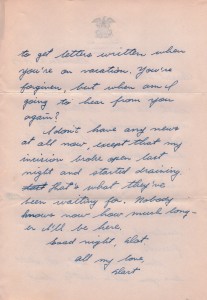 to get letters written when
you're on vacation. You're
forgiven, but when am I
going to hear from you
again?
I don't have any news
at all now, except that my
incision broke open last
night and started draining
that's what they've
been waiting for. Nobody
knows now how much long-
er I'll be here.
Good night, Dot
all my love,
Dart